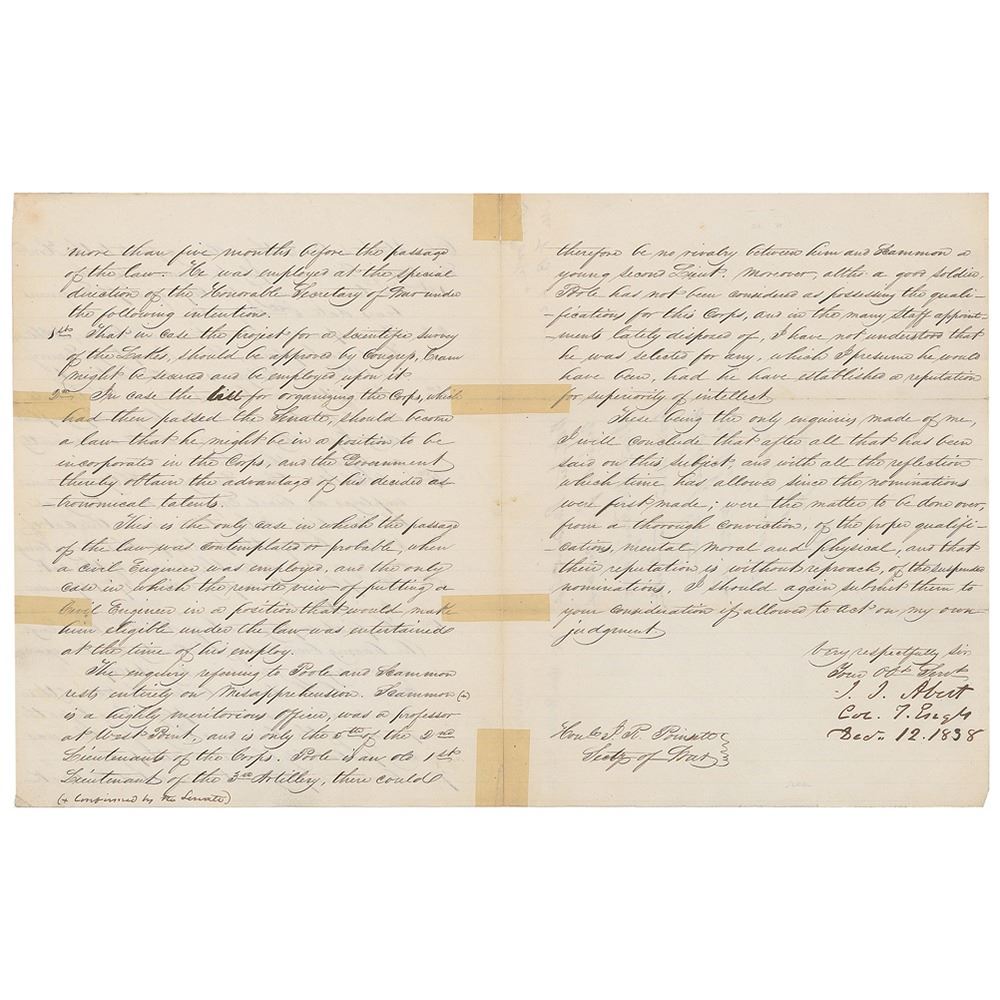 more than five months before the passage
of the law. He was employed at the special
direction of the Honorable Secretary of War under
the following intention.
1st That in case the project for a scientific survey
of the Lakes, should be approved by Congress, Cram
might be secured and be employed upon it
2nd In case the bill for organizing the Corps, which
had then passed the Senate, should become
a law that he might be in a position to be
incorporated in the Corps, and the Government
thereby obtain the advantage of his decided as-
-tronomical talents.
This is the only case in which the passage
of the law was contemplated or probable, when
a civil Engineer was employed, and the only
case in which the remote view of putting a
Civil Engineer in a position that would make
him eligible under the law was entertained
at the time of his employ.
The enquiry referring to Poole and Scammon
rests entirely on misapprehension. Scammon (+)
is a highly meritorious officer, was a professor
at West Point, and is only the 6th of the 2nd
Lieutenants of the Corps. Poole is an old 1st
Lieutenant of the 3rd Artillery, there could
(+ Confirmed by the Senate)
therefore be no rivalry between him and Scammon a
young second Lieut. Moreover, altho a good soldier,
Poole has not been considered as possessing the quali-
-fications for this Corps, and in the many Staff appoint-
-ments lately disposed of, I have not understood that
he was selected for any, which I presume he would
have been, had he have established a reputation
for superiority of intellect
These being the only enquiries made of me,
I will conclude that after all that has been
said on this subject, and with all the reflection
which time has allowed since the nominations
were first made; were the matter to be done over,
from a thorough conviction, of the proper qualifi-
-cations, mental moral and physical, and that
their reputation is without reproach, of the suspended
nominations, I should again submit them to
your consideration if allowed to act on my own
judgment.
Very respectfully Sir
Your Obt Servt
J. J. Abert
Col. T. Engrs
Decr. 12. 1838
Honble J. R. Poinsett
Secty of War